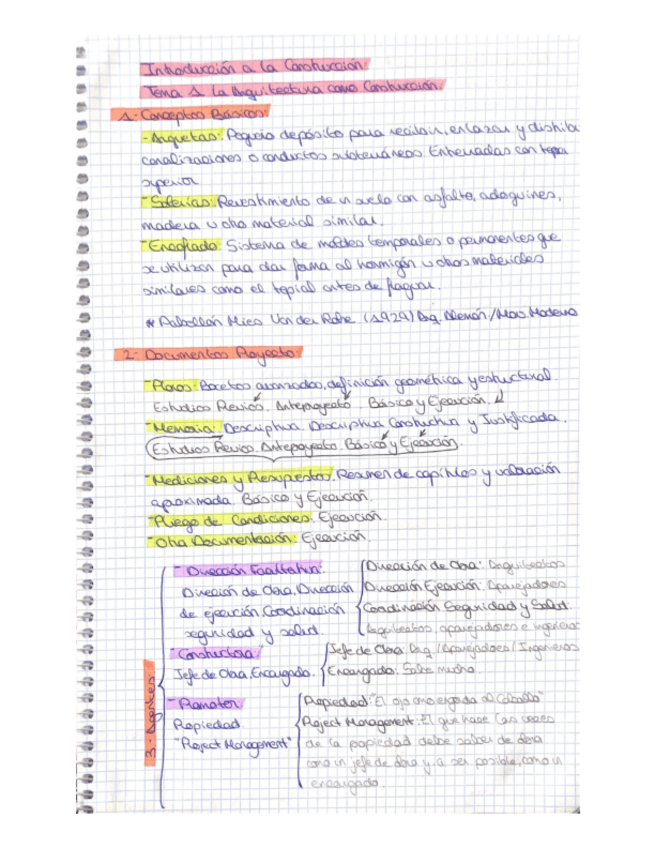 Introducción a la Construcción.
Tema 1 La Arquitectura como Construcción.
1. Conceptos Básicos:
- Arquetas: Pequeño depósito para recibir, enlazar y distribuir
canalizaciones o conductos subterráneos. Enterradas con tapa
superior
- Solerías: Revestimiento de un suelo con asfalto, adoquines,
madera u otro material similar.
- Encofrado: Sistema de moldes temporales o permanentes que
se utilizan para dar forma al hormigón u otros materiales
similares como el tapial antes de fraguar.
* Pabellón Mies Van der Rohe (1929) Arq. Alemán / Mov. Moderno
2. Documentos Proyecto:
- Planos: Bocetos avanzados, definición geométrica y estructural.
Estudios Previos. Anteproyecto. Básico y Ejecución
- Memoria: Descriptiva. Descriptiva Constructiva y Justificada.
Estudios Previos. Anteproyecto. Básico y Ejecución.
- Mediciones y Presupuestos. Resumen de capítulos y valoración
aproximada. Básico y Ejecución.
- Pliego de Condiciones: Ejecución.
- Otra Documentación: Ejecución.
3. Agentes:
- Dirección Facultativa:
Dirección de Obra. Dirección
de ejecución. Coordinación
seguridad y salud
Dirección de Obra: Arquitectos
Dirección Ejecución: Aparejadores
Coordinación Seguridad y Salud:
Arquitectos, aparejadores e ingenieros
- Constructora
Jefe de Obra. Encargado.
Jefe de Obra: Arq. / Aparejadores / Ingenieros
Encargado: Sabe mucho.
- Promotor
Propiedad
"Project Management"
Propiedad: "El ojo amo engorda al caballo"
Project Management: El que hace las veces
de la propiedad debe saber de obra
como un jefe de obra y, a ser posible, como un
encargado.